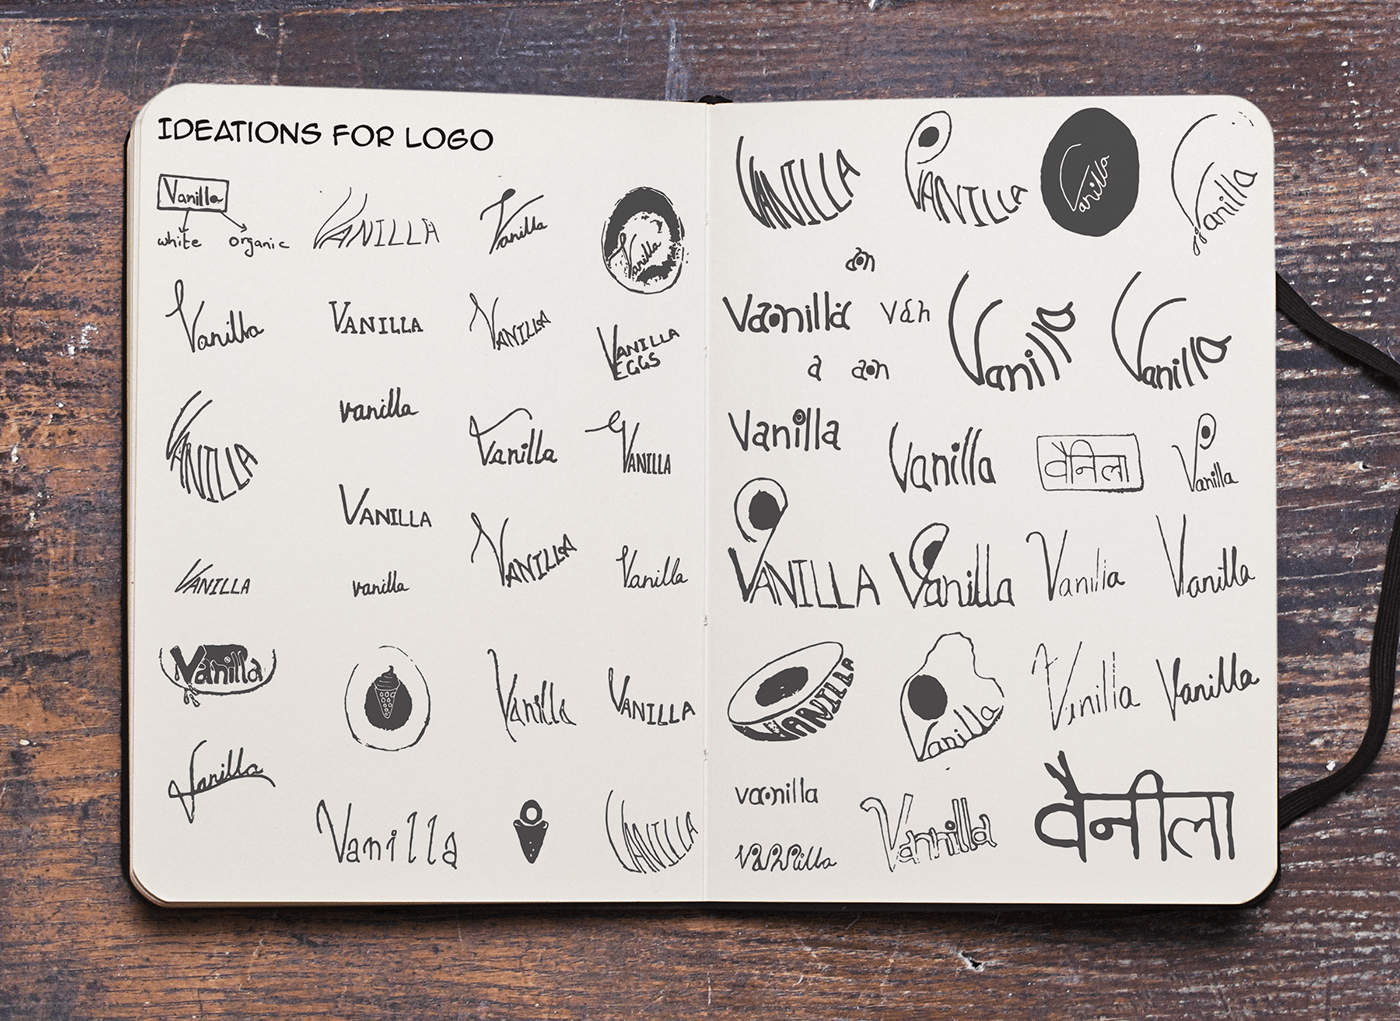 IDEATIONS FOR LOGO
Vanilla
white organic
VANILLA
Vanilla
Vanilla
Vanilla
VANILLA
VANILLA
VANILLA
EGGS
VANILLA
vanilla
Vanilla
VANILLA
VANILLA
VANILLA
Vanilla
VANILLA
vanilla
Vanilla
Vanilla
Vanilla
VANILLA
Vanilla
Vanilla
VANILLA
VANILLA
VANILLA
Vanilla
Vanilla
aon
Vaanilla
van
Vanilla
Vanilla
a aon
Vanilla
Vanilla
वैनिला
Vanilla
VANILLA
Vanilla
Vanilla
Vanilla
VANILLA
Vanilla
Vinilla
Vanilla
vanilla
Vannilla
वैनीला